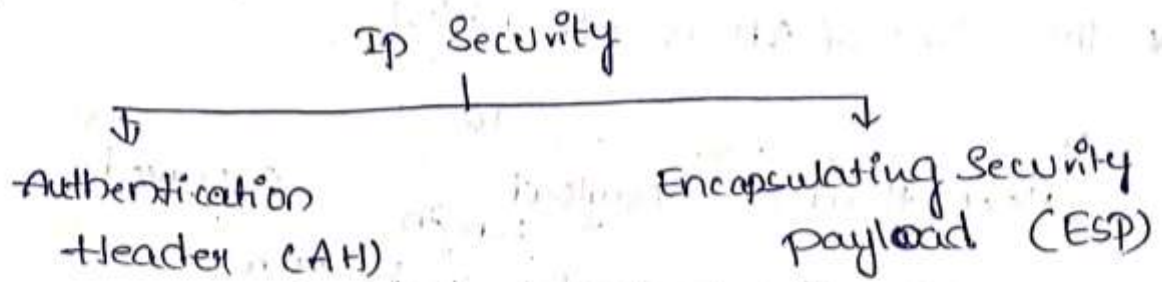 Ip Security
Authentication
Header (AH)
Encapsulating Security
payload (ESP)